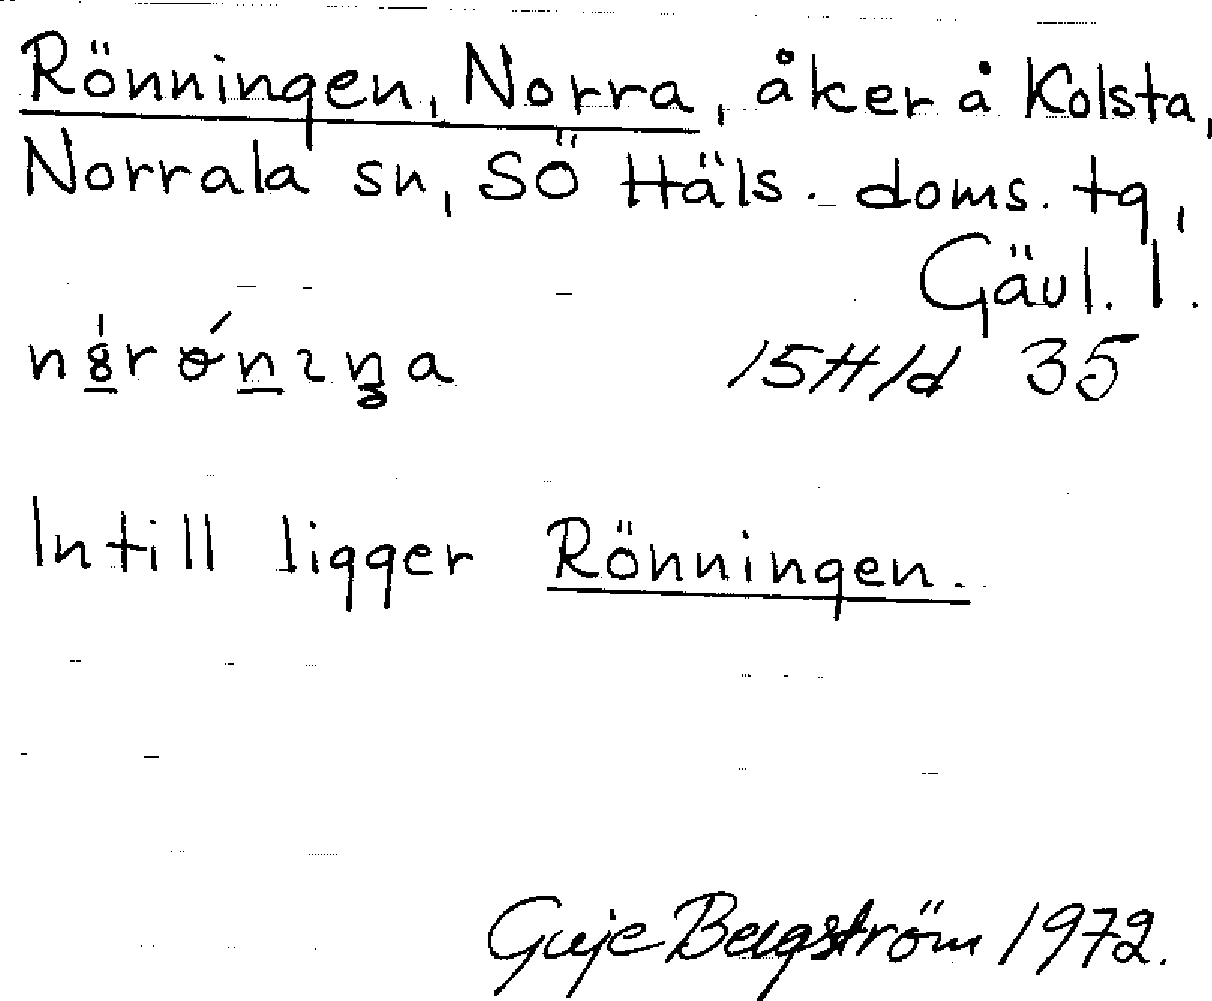 Rönningen, Norra, åker å Kolsta,
Norrala sn, SÖ Häls. doms. tg,
Gävl. l.
15H/d 35
Intill ligger Rönningen.
Bergström 1972.